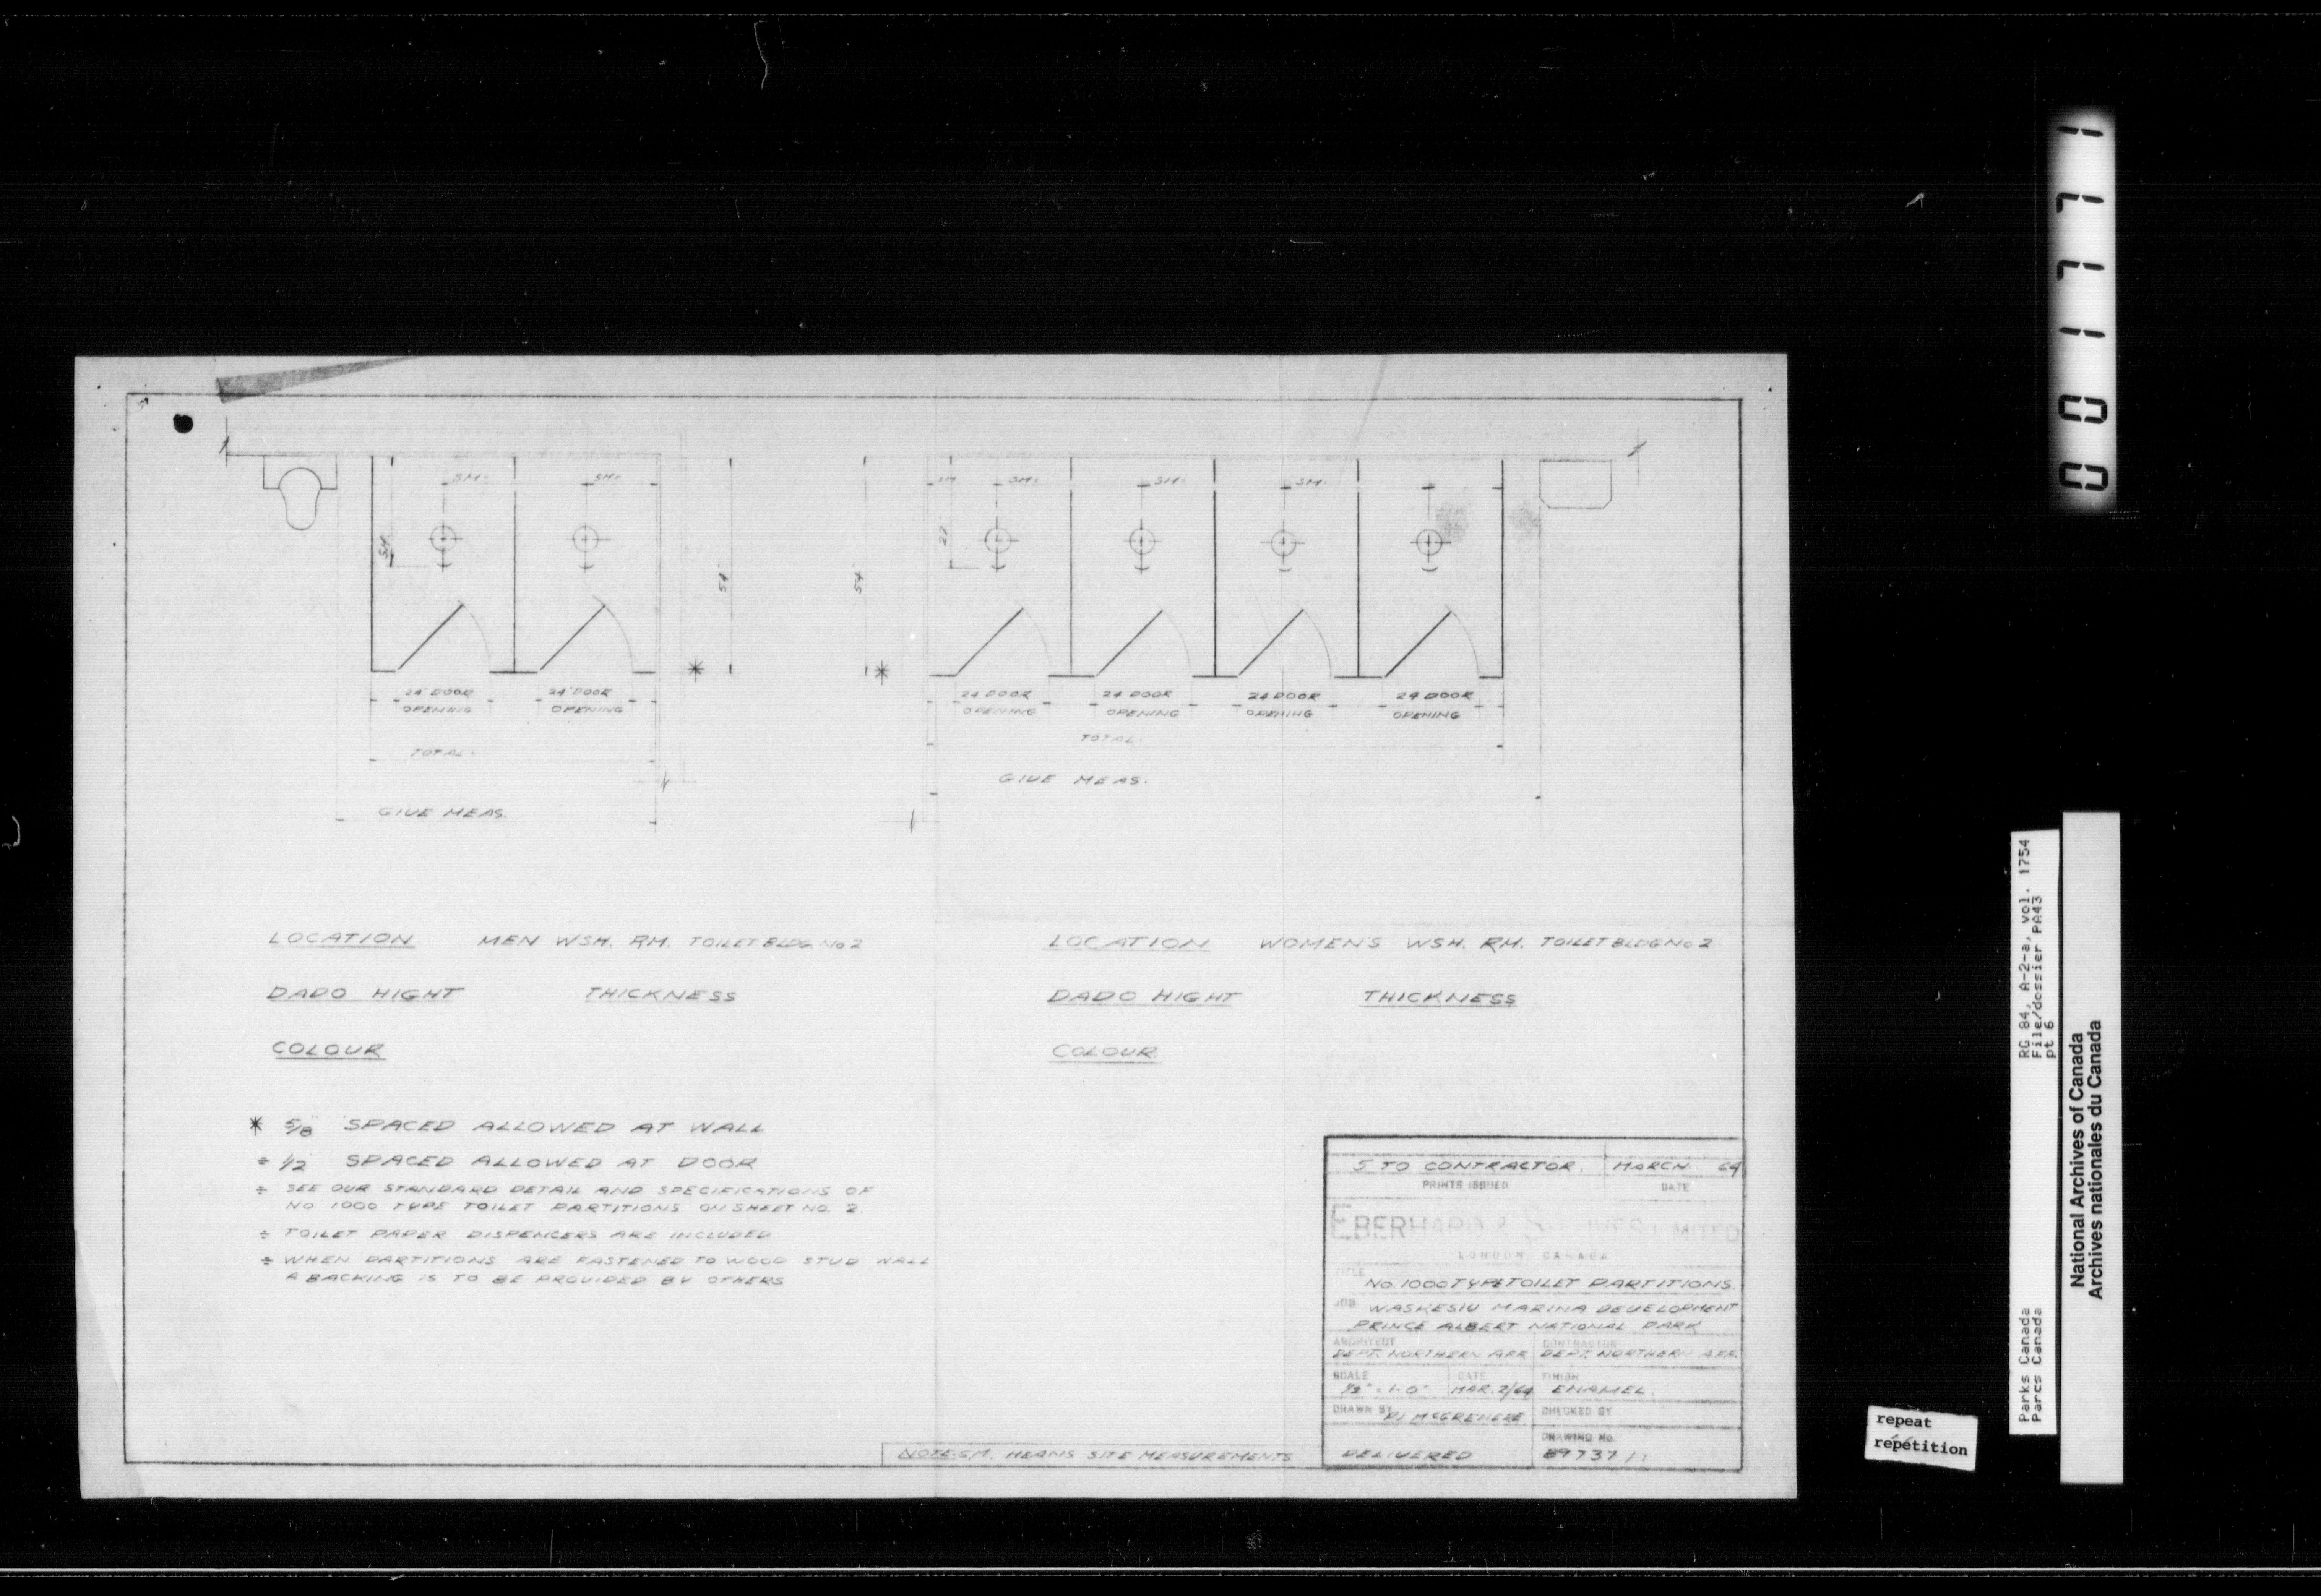 SM.
SM.
SM
SM.
SM.
SM.
SM
54"
54"
27
24" DOOR
OPENING
24" DOOR
OPENING
24 DOOR
OPENING
24 DOOR
OPENING
24 DOOR
OPENING
24 DOOR
OPENING
TOTAL.
TOTAL.
GIVE MEAS.
GIVE MEAS.
LOCATION MEN WSH. RM. TOILET BLDG. No 2
DADO HIGHT THICKNESS
COLOUR
LOCATION WOMENS WSH. RM. TOILET BLDG No 2
DADO HIGHT THICKNESS
COLOUR
* 5/8" SPACED ALLOWED AT WALL
÷ 1/2" SPACED ALLOWED AT DOOR
÷ SEE OUR STANDARD DETAIL AND SPECIFICATIONS OF
NO 1000 TYPE TOILET PARTITIONS ON SHEET NO. 2.
÷ TOILET PAPER DISPENCERS ARE INCLUDED
÷ WHEN PARTITIONS ARE FASTENED TO WOOD STUD WALL
A BACKING IS TO BE PROVIDED BY OTHERS
NOTE: S.M. MEANS SITE MEASUREMENTS
5 TO CONTRACTOR. MARCH 64
PRINTS ISSUED DATE
EBERHARD & LIMITED
LONDON, CANADA
TITLE
No. 1000 TYPE TOILET PARTITIONS.
JOB WASKESIU MARINA DEVELOPMENT
PRINCE ALBERT NATIONAL PARK
ARCHITECT CONTRACTOR
DEPT. NORTHERN AFF. DEPT. NORTHERN AFF.
SCALE DATE FINISH
1/2" = 1-0" MAR. 2/64 ENAMEL.
DRAWN BY McGRENERE CHECKED BY
DRAWING No.
DELIVERED 89737/1
001771
RG 84, A-2-a, vol. 1754
File/dossier PA43
pt 6
Parks Canada
Parcs Canada
National Archives of Canada
Archives nationales du Canada
repeat
repétition